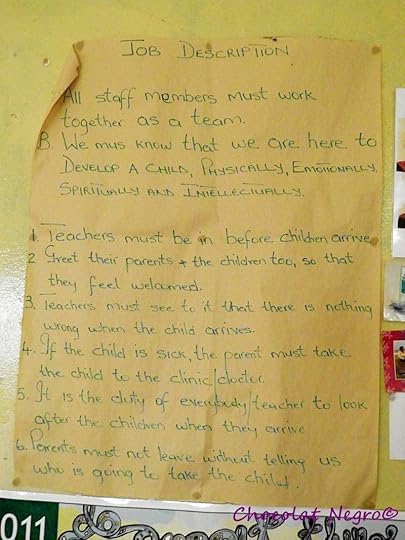 JOB DESCRIPTION
All staff members must work
together as a team.
B. We mus know that we are here to
DEVELOP A CHILD, PHYSICALLY, EMOTIONALLY
SPIRITUALLY AND INTELLECTUALLY.
1. Teachers must be in before children arrive
2 Greet their parents + the children too, so that
they feel welcomed.
3. Teachers must see to it that there is nothing
wrong when the child arrives.
4. If the child is sick, the parent must take
the child to the clinic/doctor.
5. It is the duty of everybody/teacher to look
after the children when they arrive
6. Parents must not leave without telling us
who is going to take the child.
Chocolat Negro©
011